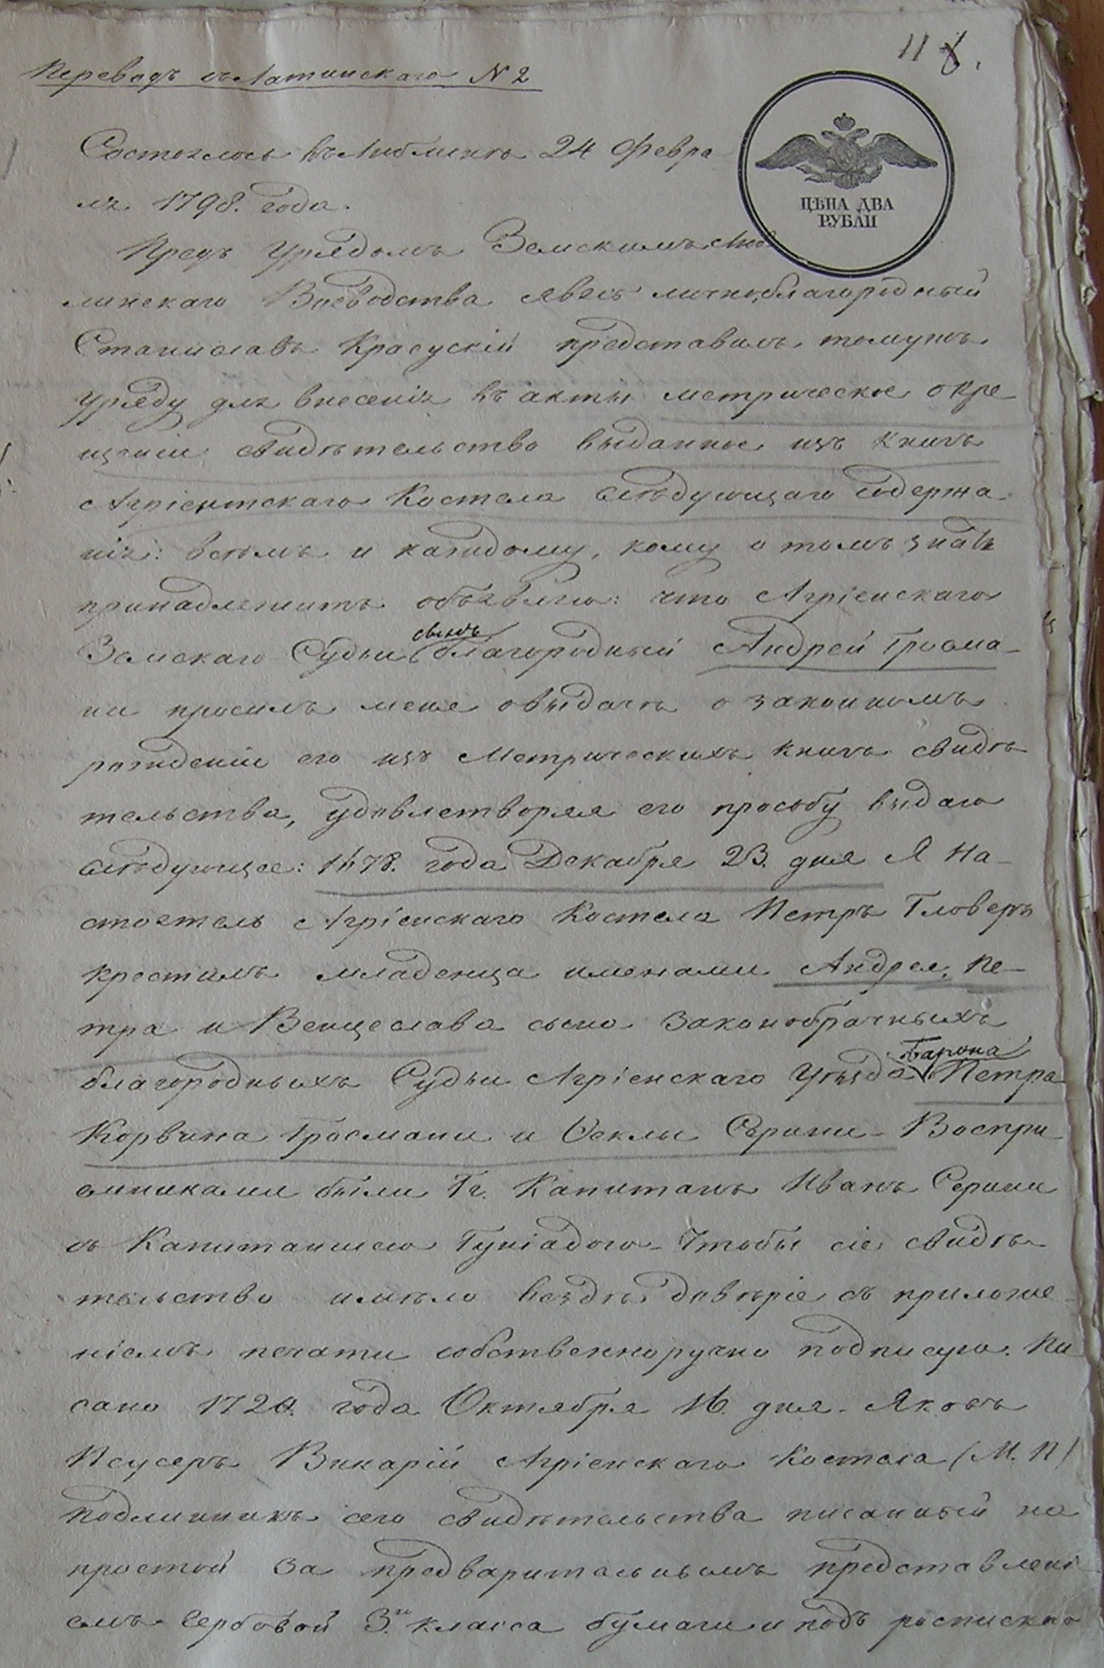 118.
Переводъ съ Латинскаго N 2
ЦѢНА ДВА
РУБЛИ
Состоялось въ Люблинѣ 24 Февра
ля 1798. года.
Предъ Урядомъ Земскимъ Люб
линскаго Воеводства явясь лично благородный
Станиславъ Красускій представилъ томужъ
Уряду для внесенія въ акты метрическое о кре-
щеніи свидѣтельство выданное изъ книгъ
Агріентскаго Костела слѣдующаго содержа-
нія: всѣмъ и каждому, кому о томъ знать
принадлежитъ объявляю: что Агріенскаго
Земскаго Судьи сынъ благородный Андрей Гросма-
ни просилъ меня о выдачѣ о законномъ
рожденіи его изъ Метрическихъ книгъ свидѣ
тельства, удовлетворяя его просьбу выдаю
слѣдующее: 1678. года Декабря 23. дня Я На-
стоятель Агріенскаго Костела Петръ Гловеръ
крестилъ младенца именами Андрея, Пе-
тра и Венцеслава сына законобрачныхъ
благородныхъ Судьи Агріенскаго Уѣзда Барона Петра
Корвина Гросмани и Феклы Сѣрини - Воспри
емниками были Гг. Капитанъ Иванъ Серини
съ Капитаншею Гуніадою - Чтобы сіе свидѣ-
тельство имѣло вездѣ довѣріе съ приложе-
ніемъ печати собственноручно подписую. Пи
сано 1720. года Октября 16. дня - Яковъ
Псусеръ Викарій Агріенскаго Костела (М. П)
подлинникъ сего свидѣтельства писанный на
простой за предварительнымъ представлені
емъ Сербовой 3.й класса бумаги и подъ роспискою